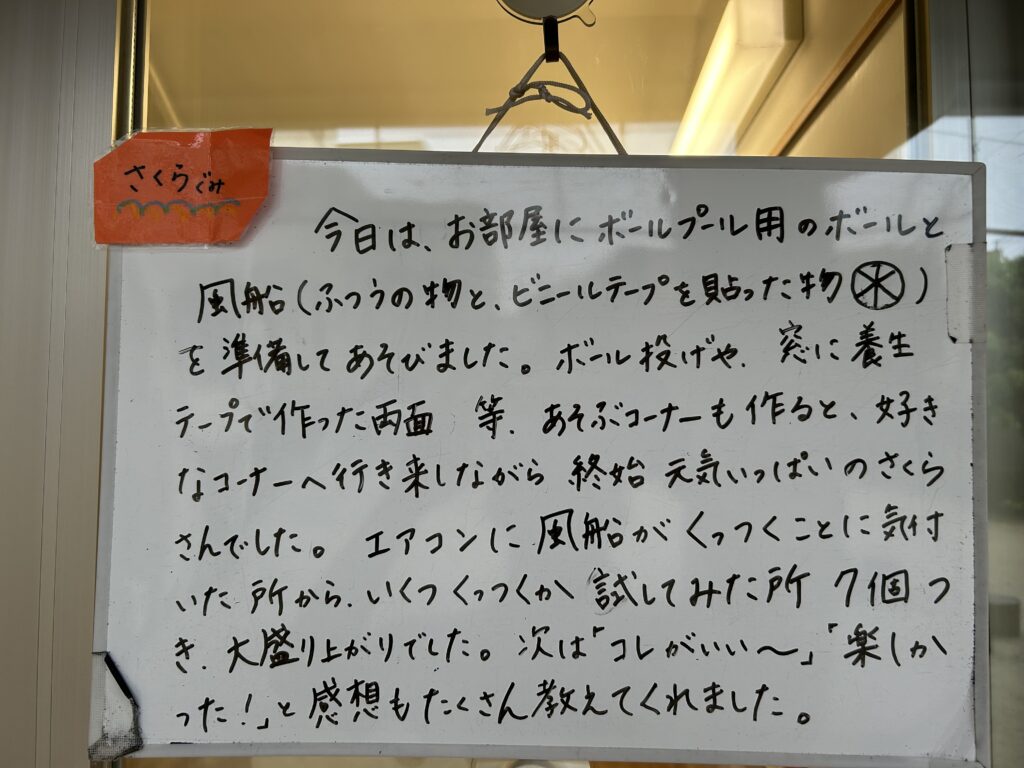 さくらぐみ
今日は、お部屋にボールプール用のボールと
風船(ふつうの物と、ビニールテープを貼った物 )
を準備してあそびました。ボール投げや、窓に養生
テープで作った両面 等、あそぶコーナーも作ると、好き
なコーナーへ行き来しながら 終始 元気いっぱいのさくら
さんでした。エアコンに風船がくっつくことに気付
いた所から、いくつくっつくか 試してみた所 7個つ
き、大盛り上がりでした。次は「コレがいい〜」「楽しか
った!」と感想もたくさん教えてくれました。